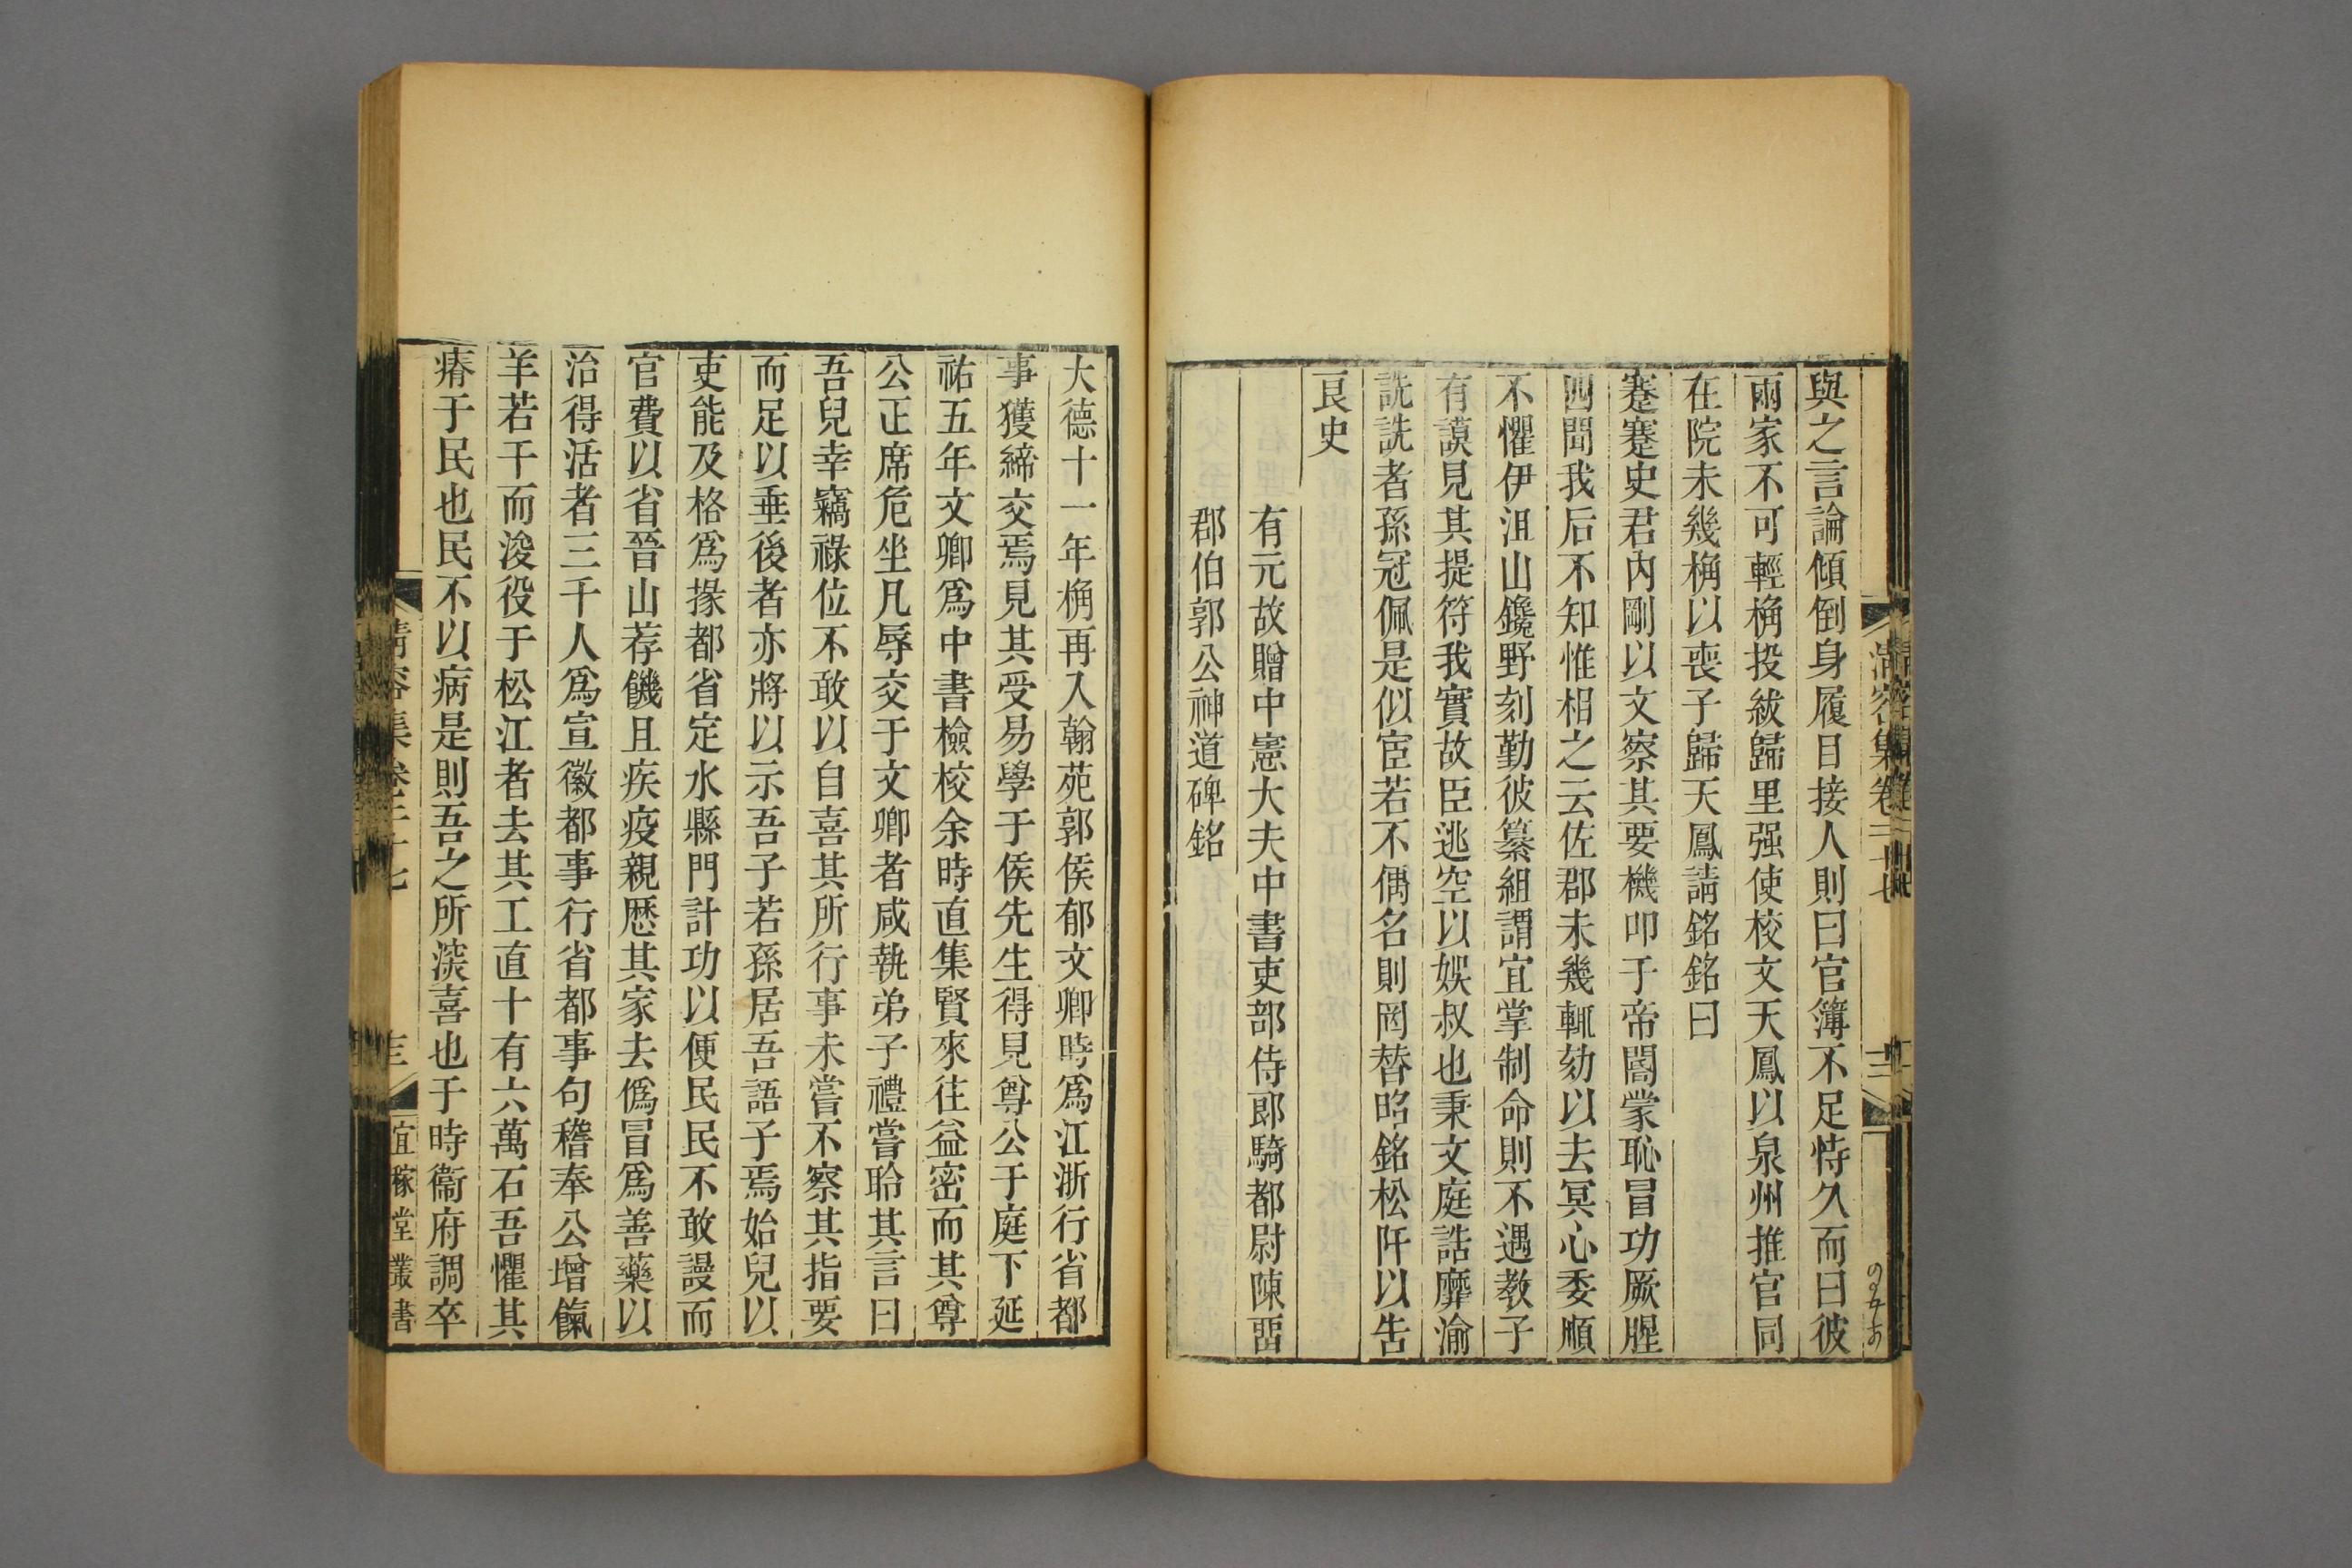 與之言論傾倒身履日接人則曰官簿不足恃久而曰彼
兩家不可輕桷投紱歸里强使校文天鳳以泉州推官同
在院未幾桷以喪子歸天鳳請銘銘曰
蹇蹇史君内剛以文察其要機叩于帝閽蒙恥冒功厥腥
四聞我后不知惟相之云佐郡未幾輒劾以去冥心委順
不懼伊沮山鑱野刻勤彼纂組謂宜掌制命則不遇教子
有謨見其提符我實故臣逃空以娛叔也秉文庭誥靡渝
詵詵者孫冠佩是似宦若不偶名則罔替昭銘松阡以告
良史
有元故贈中憲大夫中書吏部侍郎騎都尉陳畱
郡伯郭公神道碑銘
清容集卷二十七
三
大德十一年桷再入翰苑郭侯郁文卿時爲江浙行省都
事獲締交焉見其受易學于侯先生得見尊公于庭下延
祐五年文卿爲中書檢校余時直集賢來往益密而其尊
公正席危坐凡辱交于文卿者咸執弟子禮嘗聆其言曰
吾兒幸竊祿位不敢以自喜其所行事未嘗不察其指要
而足以垂後者亦將以示吾子若孫居吾語子焉始兒以
吏能及格爲掾都省定水縣門計功以便民民不敢謾而
官費以省晉山荐饑且疾疫親歷其家去僞冒爲善藥以
治得活者三千人爲宣徽都事行省都事句稽奉公增餼
羊若干而浚役于松江者去其工直十有六萬石吾懼其
瘠于民也民不以病是則吾之所深喜也于時衞府調卒
清容集卷二十七
三
宜稼堂叢書